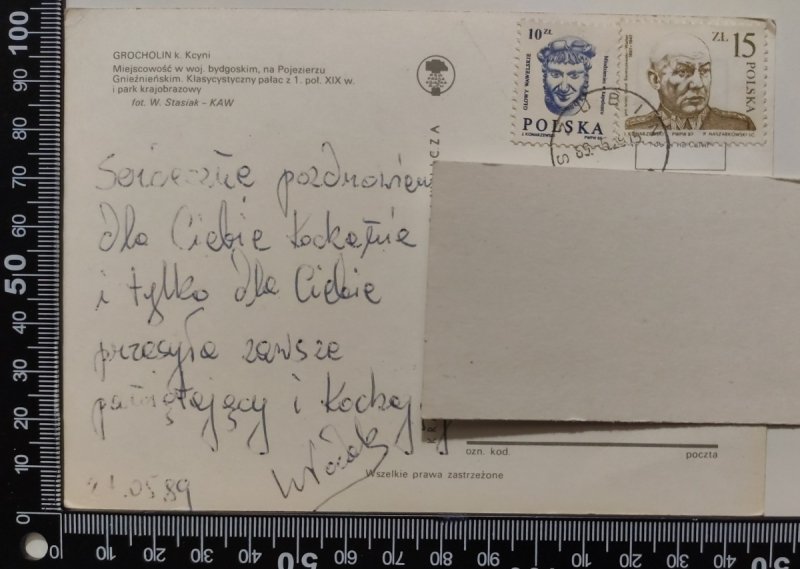 GROCHOLIN k. Kcyni
Miejscowość w woj. bydgoskim, na Pojezierzu
Gnieźnieńskim. Klasycystyczny pałac z 1. poł. XIX w.
i park krajobrazowy
fot. W. Stasiak – KAW
10 ZŁ
GŁOWY WAWELSKIE
POLSKA
ZŁ 15
POLSKA
Serdeczne pozdrowien
dla Ciebie
i tylko dla Ciebie
przesyła zawsze
pamiętający i
21.05.89
ozn. kod
poczta
Wszelkie prawa zastrzeżone
100
90
80
70
60
50
40
30
20
10
0
0
10
20
30
40
50
60
70
80
90